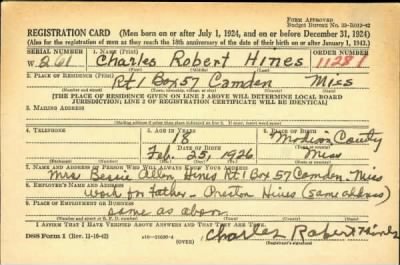 Form Approved
Budget Bureau No. 33-R012-42
REGISTRATION CARD (Men born on or after July 1, 1924, and on or before December 31, 1924)
(Also for the registration of men as they reach the 18th anniversary of the date of their birth on or after January 1, 1943.)
SERIAL NUMBER 1. NAME (Print) ORDER NUMBER
W. 261 Charles Robert Hines 11281
2. PLACE OF RESIDENCE (Print)
Rt 1 Box 57 Camden Miss
[THE PLACE OF RESIDENCE GIVEN ON LINE 2 ABOVE WILL DETERMINE LOCAL BOARD
JURISDICTION; LINE 2 OF REGISTRATION CERTIFICATE WILL BE IDENTICAL]
3. MAILING ADDRESS
4. TELEPHONE 5. AGE IN YEARS 6. PLACE OF BIRTH
18 Madison County
DATE OF BIRTH
Feb. 25, 1926 Miss
7. NAME AND ADDRESS OF PERSON WHO WILL ALWAYS KNOW YOUR ADDRESS
Mrs Bessie Allen Hines Rt 1 Box 57 Camden - Miss
8. EMPLOYER'S NAME AND ADDRESS
Work for Father - Preston Hines (Same address)
9. PLACE OF EMPLOYMENT OR BUSINESS
same as above
I AFFIRM THAT I HAVE VERIFIED ABOVE ANSWERS AND THAT THEY ARE TRUE.
DSS Form 1 (Rev. 11-16-42) (OVER) Charles Robert Hines
(Registrant's signature)